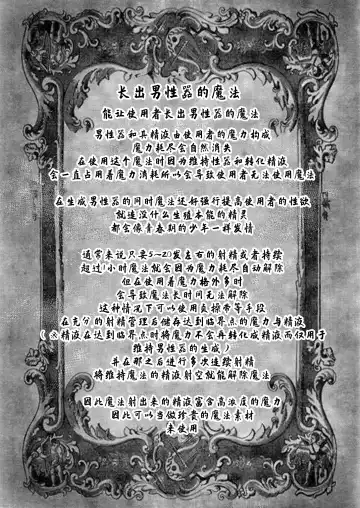 长出男性器的魔法
能让使用者长出男性器的魔法
男性器和其精液由使用者的魔力构成
魔力耗尽会自然消失
在使用这个魔法时因为维持性器和转化精液
会一直占用着魔力消耗所以会导致使用者无法使用魔法
在生成男性器的同时魔法还会强行提高使用者的性欲
就连没什么生殖本能的精灵
都会像青春期的少年一样发情
通常来说只要5~21发左右的射精或者持续
超过1小时魔法就会因为魔力耗尽自动解除
但在使用者魔力格外多时
会导致魔法长时间无法解除
这种情况下可以使用贞操带等手段
在充分的射精管理后储存达到临界点的魔力与精液
(※精液在达到临界点时将魔力不会再转化成精液而仅用于
维持男性器的生成)
并在那之后进行多次连续射精
将维持魔法的精液射空就能解除魔法
因此魔法射出来的精液富含高浓度的魔力
因此可以当做珍贵的魔法素材
来使用